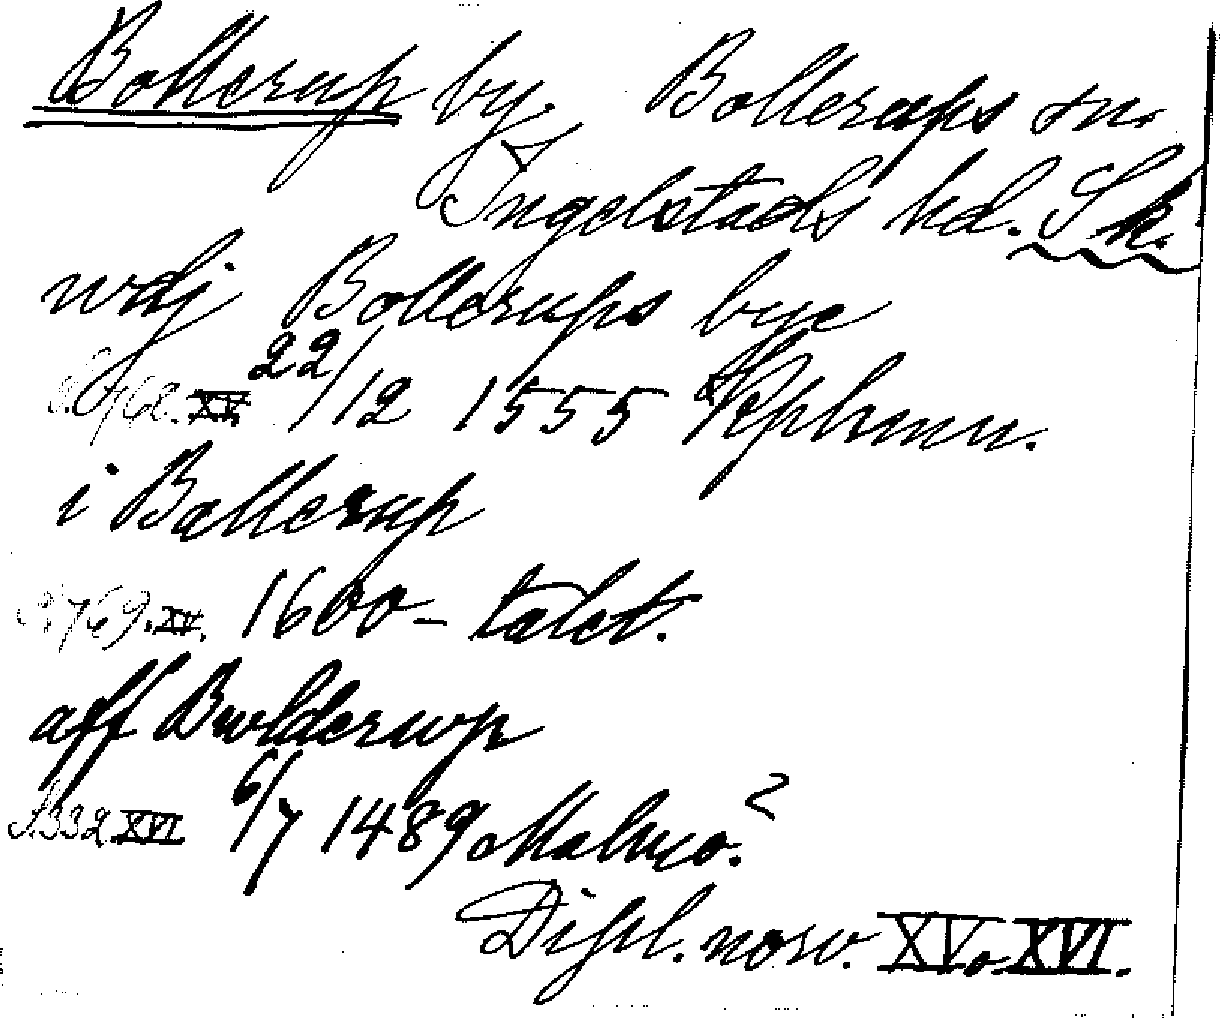 Bollerup by. Bollerups sn.
Ingelstads hd. Sk.
wdj Bollerups bye
S. 768. XV. 22/12 1555 Kphmn.
i Bollerup
S. 769. XV. 1600-talet.
aff Bwlderwp
S. 332 XVI 6/7 1489 Malmø?
Dipl. norv. XV o XVI.